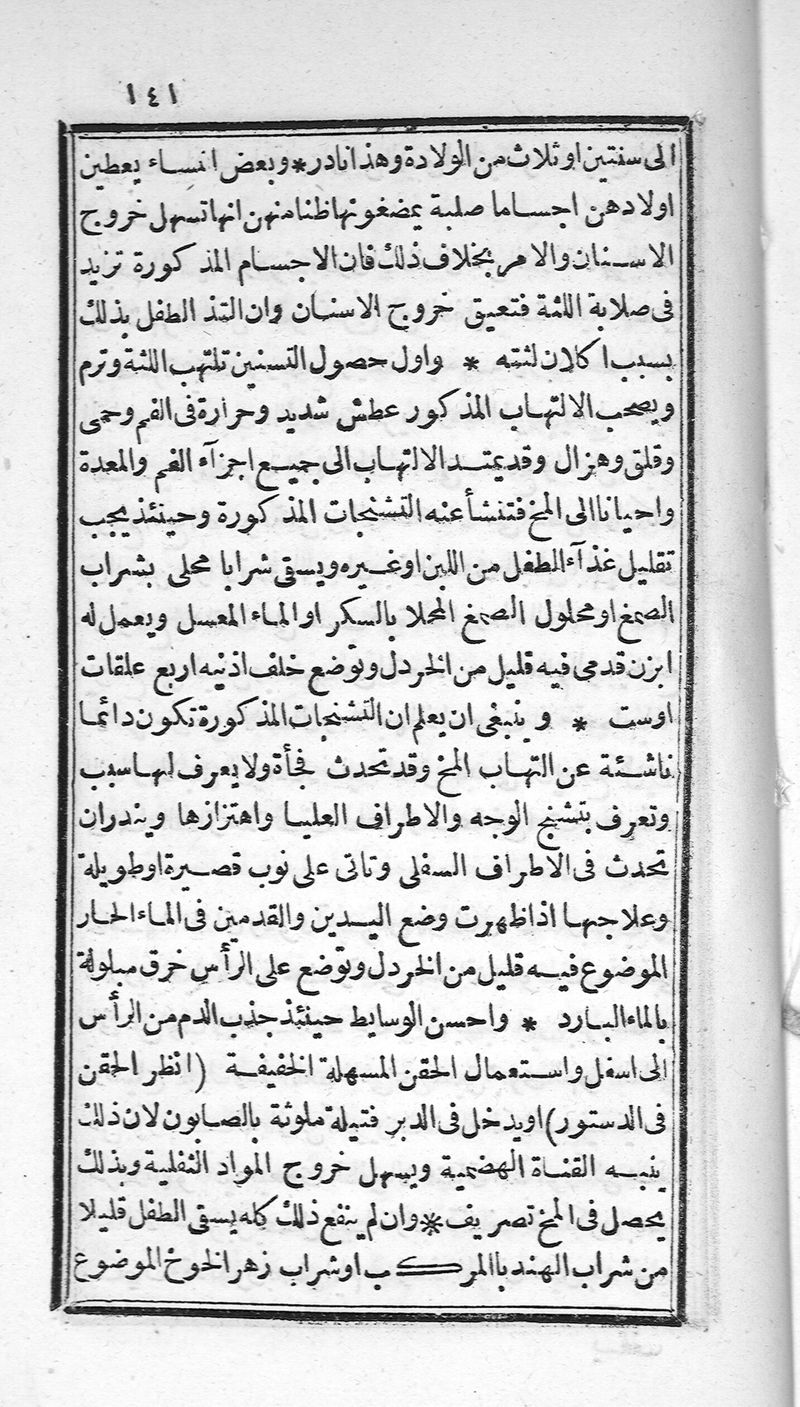 ١٤١
الى سنتين او ثلاث من الولادة وهذا نادر * وبعض انساء يعطين
اولادهن اجساما صلبة يمضغونها ظنا منهن انها تسهل خروج
الاسنان والامر بخلاف ذلك فان الاجسام المذكورة تزيد
فى صلابة اللثة فتعيق خروج الاسنان وان التذ الطفل بذلك
بسبب اكلان لثته * واول حصول التسنين تلتهب اللثة وترم
ويصحب الالتهاب المذكور عطش شديد وحرارة فى الفم وحمى
وقلق وهزال وقد يمتد الالتهاب الى جميع اجزآء الفم والمعدة
واحيانا الى المخ فتنشأ عنه التشنجات المذكورة وحينئذ يجب
تقليل غذآء الطفل من اللبن او غيره ويسقى شرابا محلى بشراب
الصمغ او محلول الصمغ المحلا بالسكر او الماء المعسل ويعمل له
ابزن قدمى فيه قليل من الخردل وتوضع خلف اذنيه اربع علقات
اوست * وينبغى ان يعلم ان التشنجات المذكورة تكون دائما
ناشئة عن التهاب المخ وقد تحدث فجأة ولا يعرف لها سبب
وتعرف بتشنج الوجه والاطراف العليا واهتزازها ويندران
تحدث فى الاطراف السفلى وتاتى على نوب قصيرة او طويلة
وعلاجها اذا ظهرت وضع اليدين والقدمين فى الماء الحار
الموضوع فيه قليل من الخردل وتوضع على الرأس خرق مبلولة
بالماء البارد * واحسن الوسايط حينئذ جذب الدم من الرأس
الى اسفل واستعمال الحقن المسهلة الخفيفة (انظر الحقن
فى الدستور) او يدخل فى الدبر فتيلة ملوثة بالصابون لان ذلك
ينبه القناة الهضمية ويسهل خروج المواد الثفلية وبذلك
يحصل فى المخ تصريف * وان لم ينفع ذلك كله يسقى الطفل قليلا
من شراب الهندبا المركب او شراب زهر الخوخ الموضوع